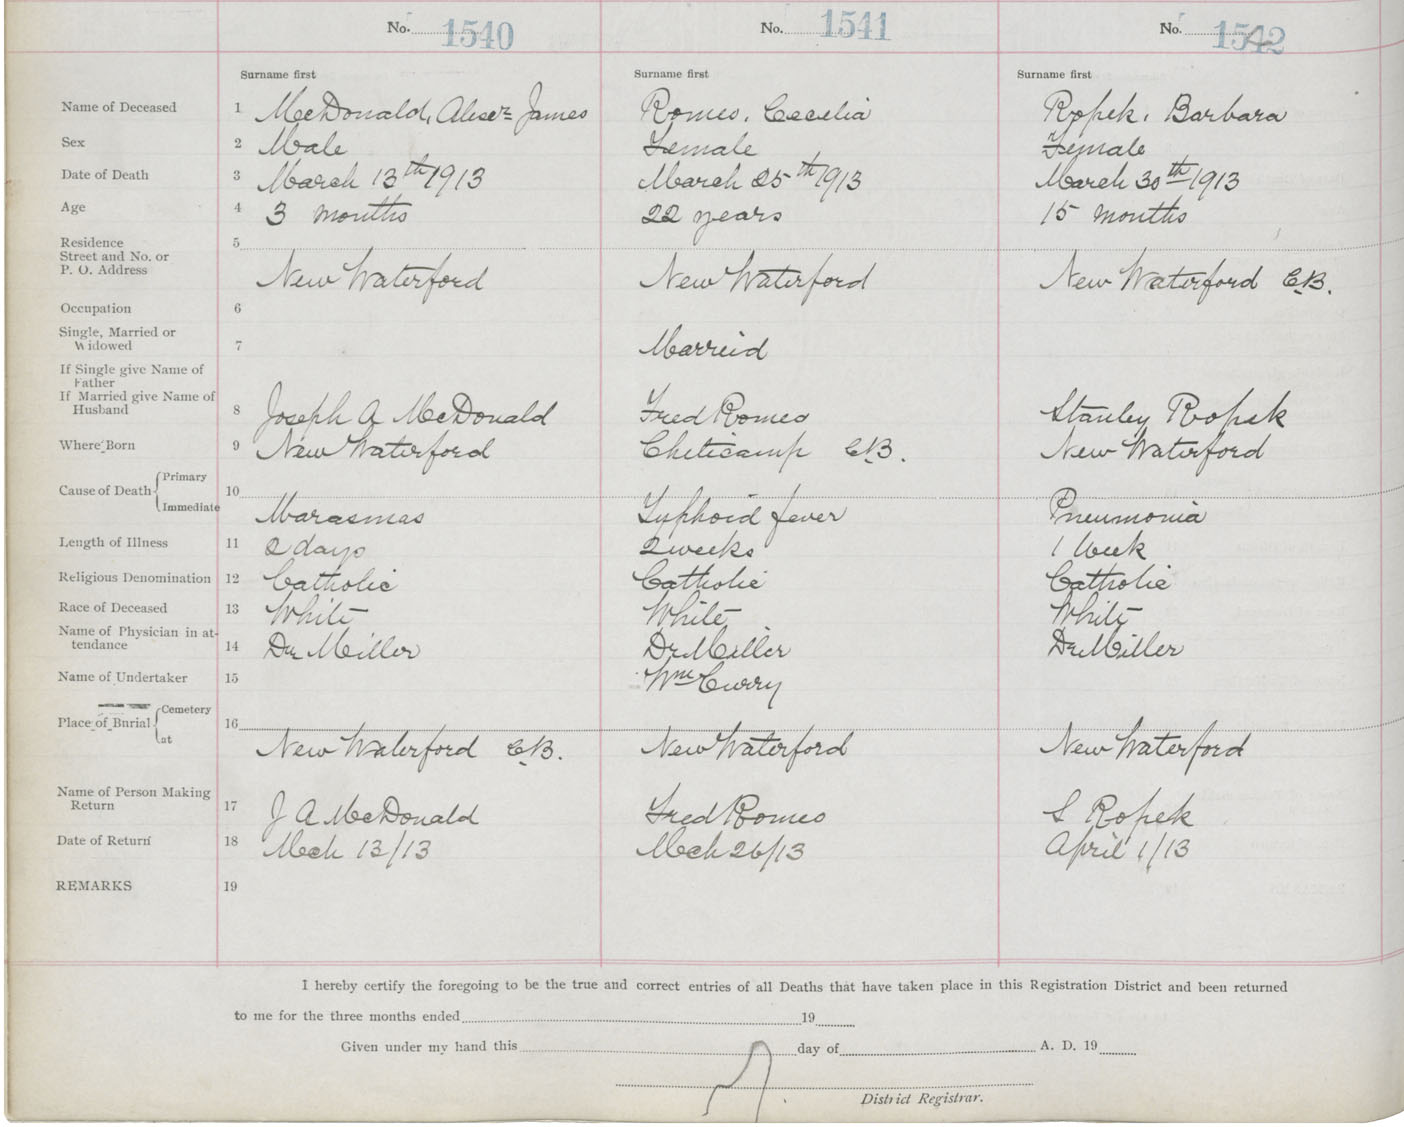 No. 1540 No. 1541 No. 1542
Surname first Surname first Surname first
Name of Deceased 1 McDonald, Alexr James Romeo, Cecelia Ropek, Barbara
Sex 2 Male Female Female
Date of Death 3 March 13th 1913 March 25th 1913 March 30th 1913
Age 4 3 months 22 years 15 months
Residence 5
Street and No. or
P. O. Address New Waterford New Waterford New Waterford C.B.
Occupation 6
Single, Married or
Widowed 7 Marreid
If Single give Name of
Father
If Married give Name of
Husband 8 Joseph A McDonald Fred Romeo Stanley Ropek
Where Born 9 New Waterford Cheticamp C.B. New Waterford
Cause of Death Primary 10
Immediate Marasmas Typhoid fever Pneumonia
Length of Illness 11 2 days 2 weeks 1 Week
Religious Denomination 12 Catholic Catholic Catholic
Race of Deceased 13 White White White
Name of Physician in at-
tendance 14 Dr Miller Dr Miller Dr Miller
Name of Undertaker 15 Wm Curry
Place of Burial Cemetery 16
at New Waterford C.B. New Waterford New Waterford
Name of Person Making
Return 17 J A McDonald Fred Romeo S Ropek
Date of Return 18 Mch 13/13 Mch 26/13 April 1/13
REMARKS 19
I hereby certify the foregoing to be the true and correct entries of all Deaths that have taken place in this Registration District and been returned
to me for the three months ended 19
Given under my hand this day of A. D. 19
District Registrar.